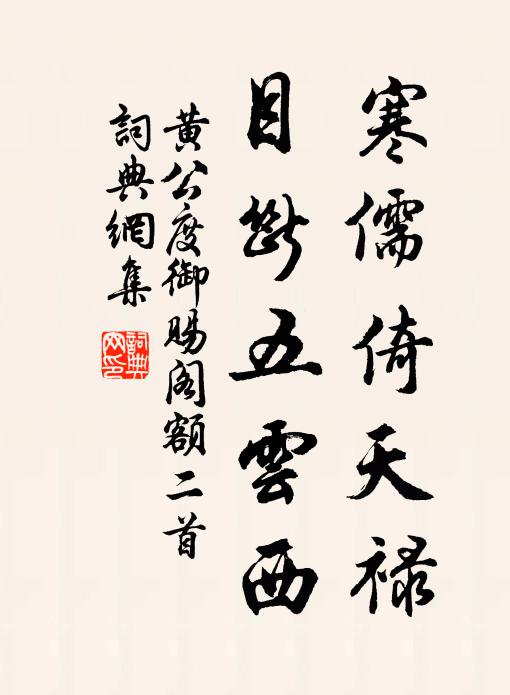 寒儒倚天禄
目断五雲西
黄公度御賜阁額二首
詞典網集
詞典网印